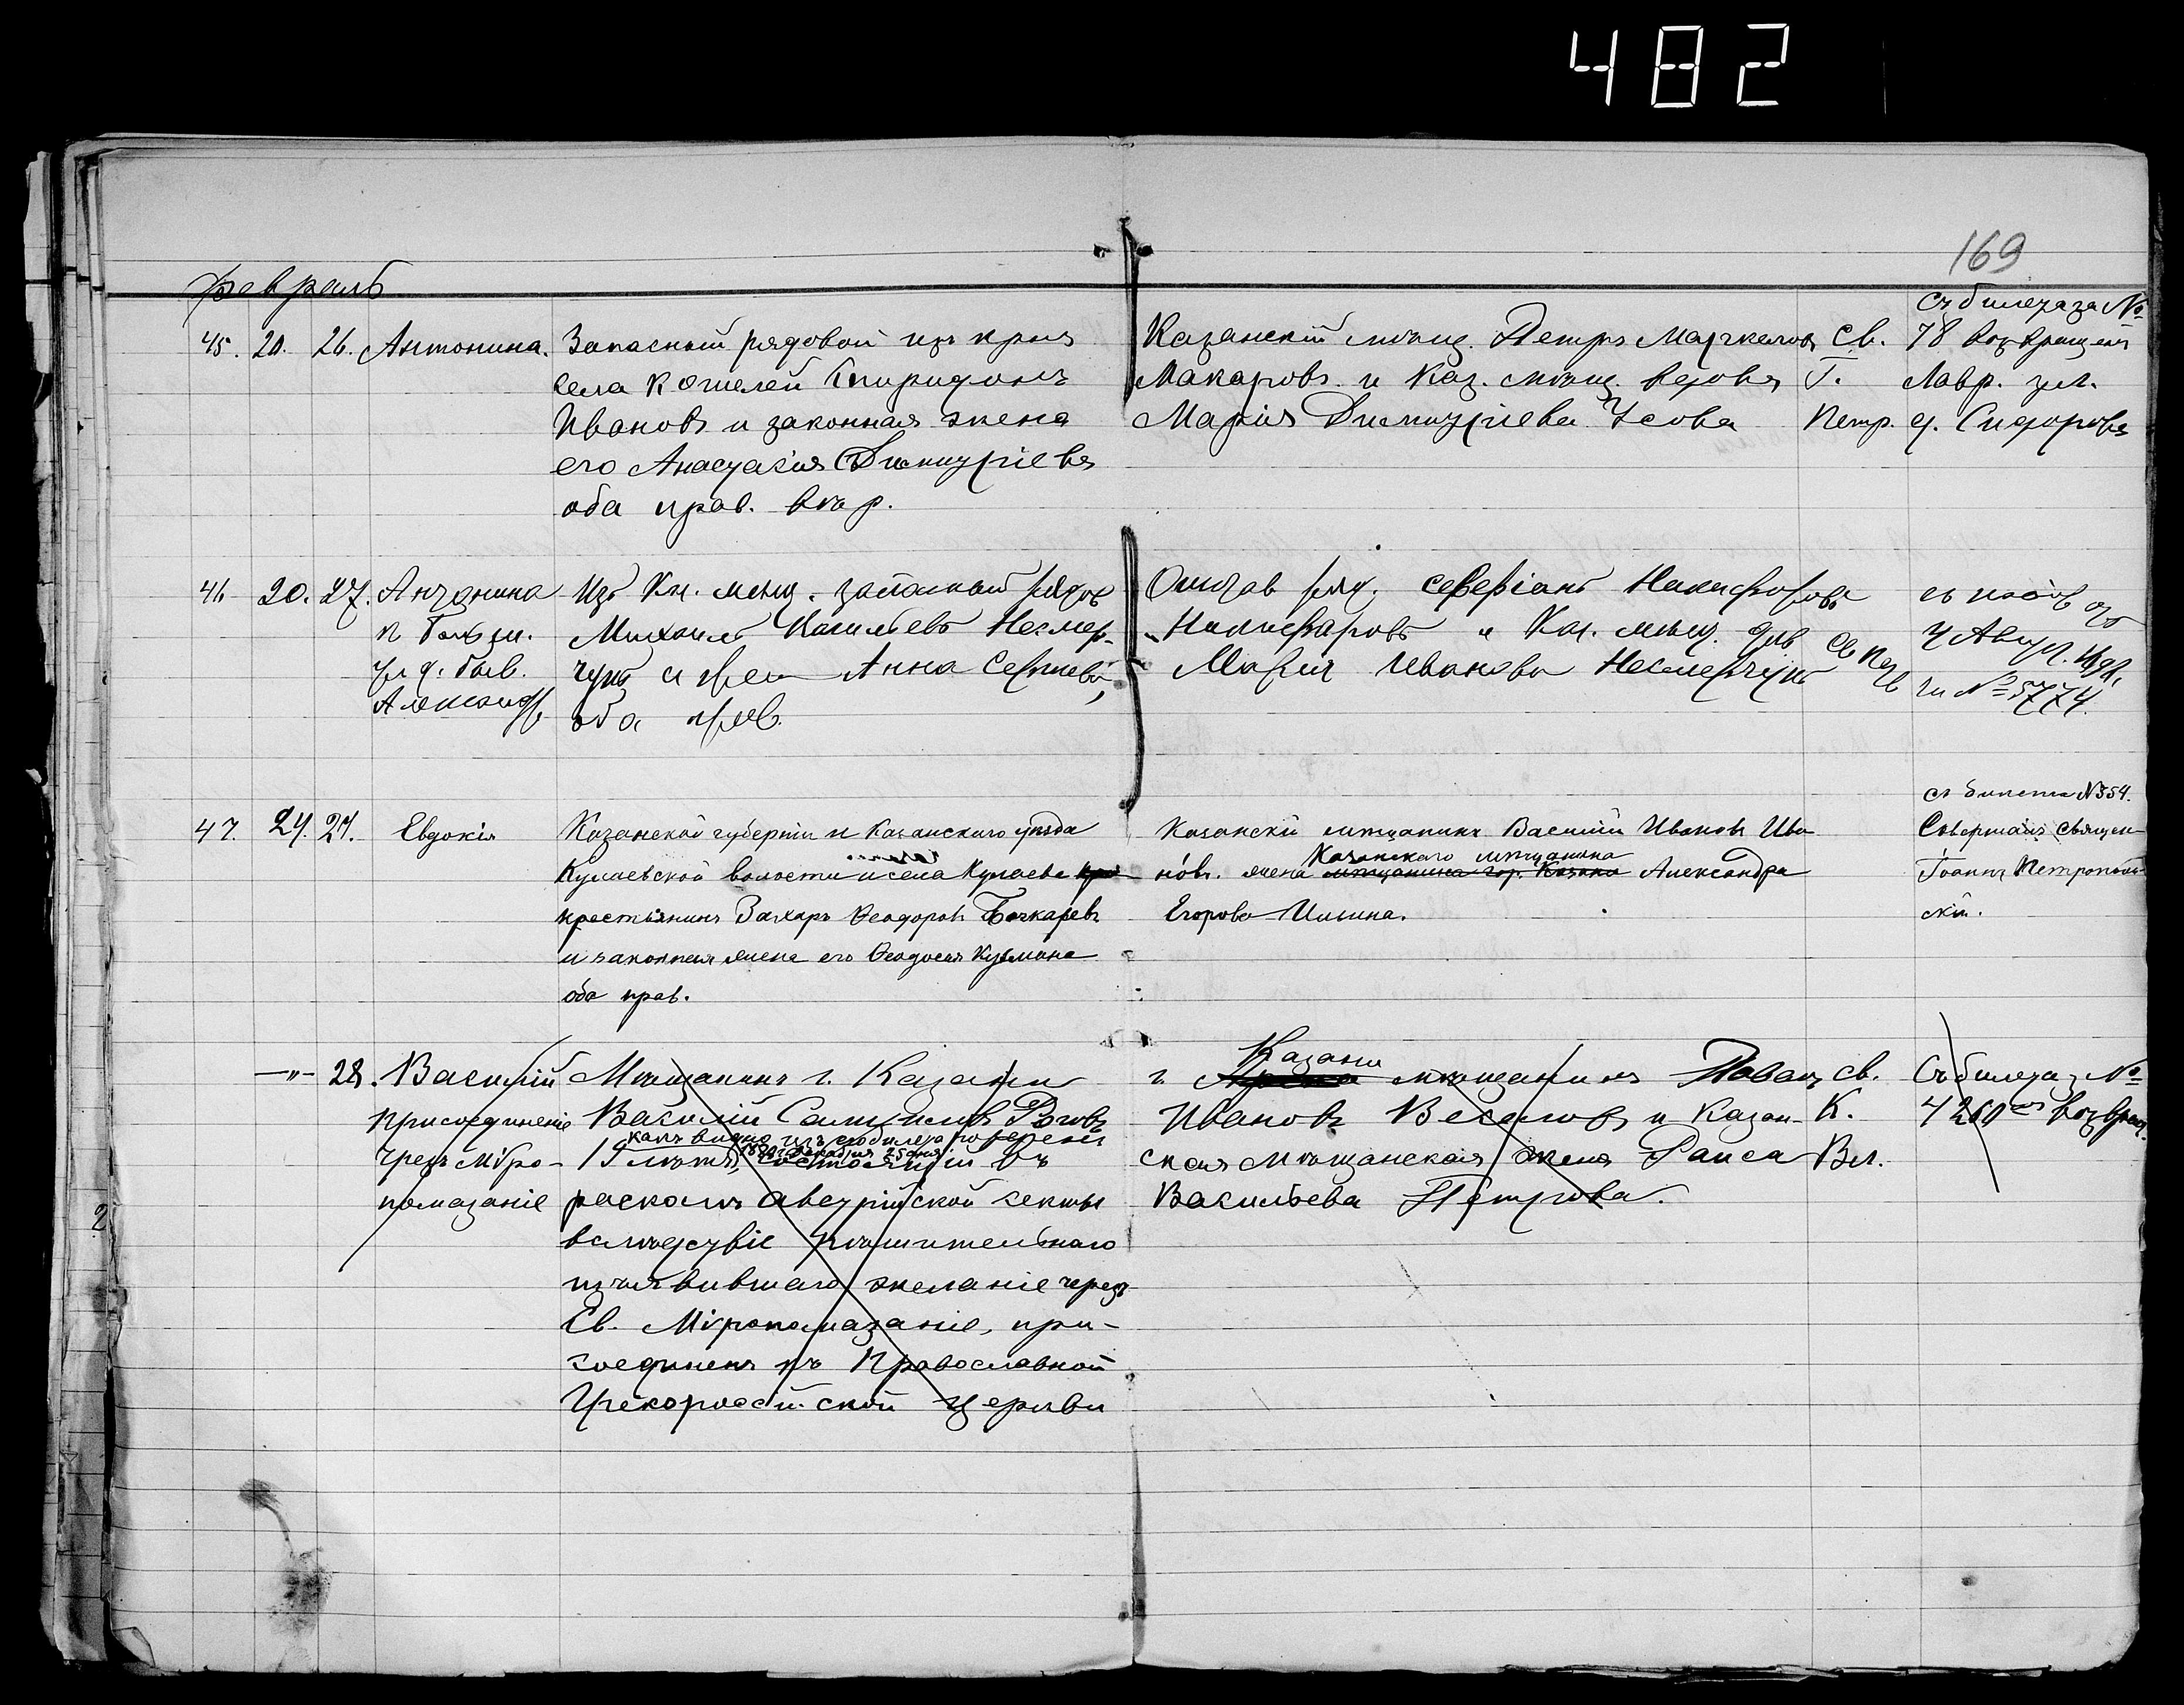 482
169
Февраль
45. 20. 26. Антонина.
Запасный рядовой изъ крья
села Кошелей Спиридонъ
Ивановъ и законная жена
его Анастасія Димитріева
оба прав. вѣр.
Казанскій мѣщ. Петръ Маркелов
Макаровъ и Каз. мѣщ. вдова
Марія Димитріева Усова
Св.
Г.
Петр.
Съ билета за №
78 возвращенъ
Лавр.
д. Сидорова
46 20. 27. Антонина
Александр
Изъ Кн. мѣщ. запасный рядов
Михаилъ Васильевъ Несмер-
чукъ и жена Анна Сергѣева,
оба прав.
Отстав ряд. Северіанъ Никифоровъ
Никифоровъ и Каз. мѣщ. дѣв.
Марія Иванова Несмерчукъ
4 Авгус.
за № 5774.
47. 24. 27. Евдокія
Казанской губерніи и Казанскаго уѣзда
Кулаевской волости и села Кулаева
крестьянинъ Захаръ Ѳеодоровъ Бочкаревъ
и законная жена его Ѳеодосія Кузьмина
оба прав.
Казанскій мѣщанинъ Василій Ивановъ Ива
Казанскаго мѣщанина
новъ. жена мѣщанина гор. Казани Александра
Егорова Ильина.
съ билета №354.
Совершалъ священ
Іоаннъ Петропавлов
скій.
—"— 28. Василій
присоединеніе
чрезъ Мѵро-
помазаніе
Мѣщанинъ г. Казани
Василій Самуиловъ Роговъ
какъ видно изъ его билета
1880 г. Декабря 25 дня
19 лѣтъ, состоящій въ
расколѣ австрійской секты
вслѣдствіе рѣшительнаго
изъявившаго желаніе чрезъ
Св. Мѵропомазаніе, при-
соединенъ къ Православной
Грекороссійской церкви
Казани
г. мѣщанинъ Павелъ
Ивановъ Веселовъ и Казан-
ская мѣщанская жена Раиса
Васильева Петрова.
Св.
К.
Вл.
Съ билета за №
4260 возвращ.
2